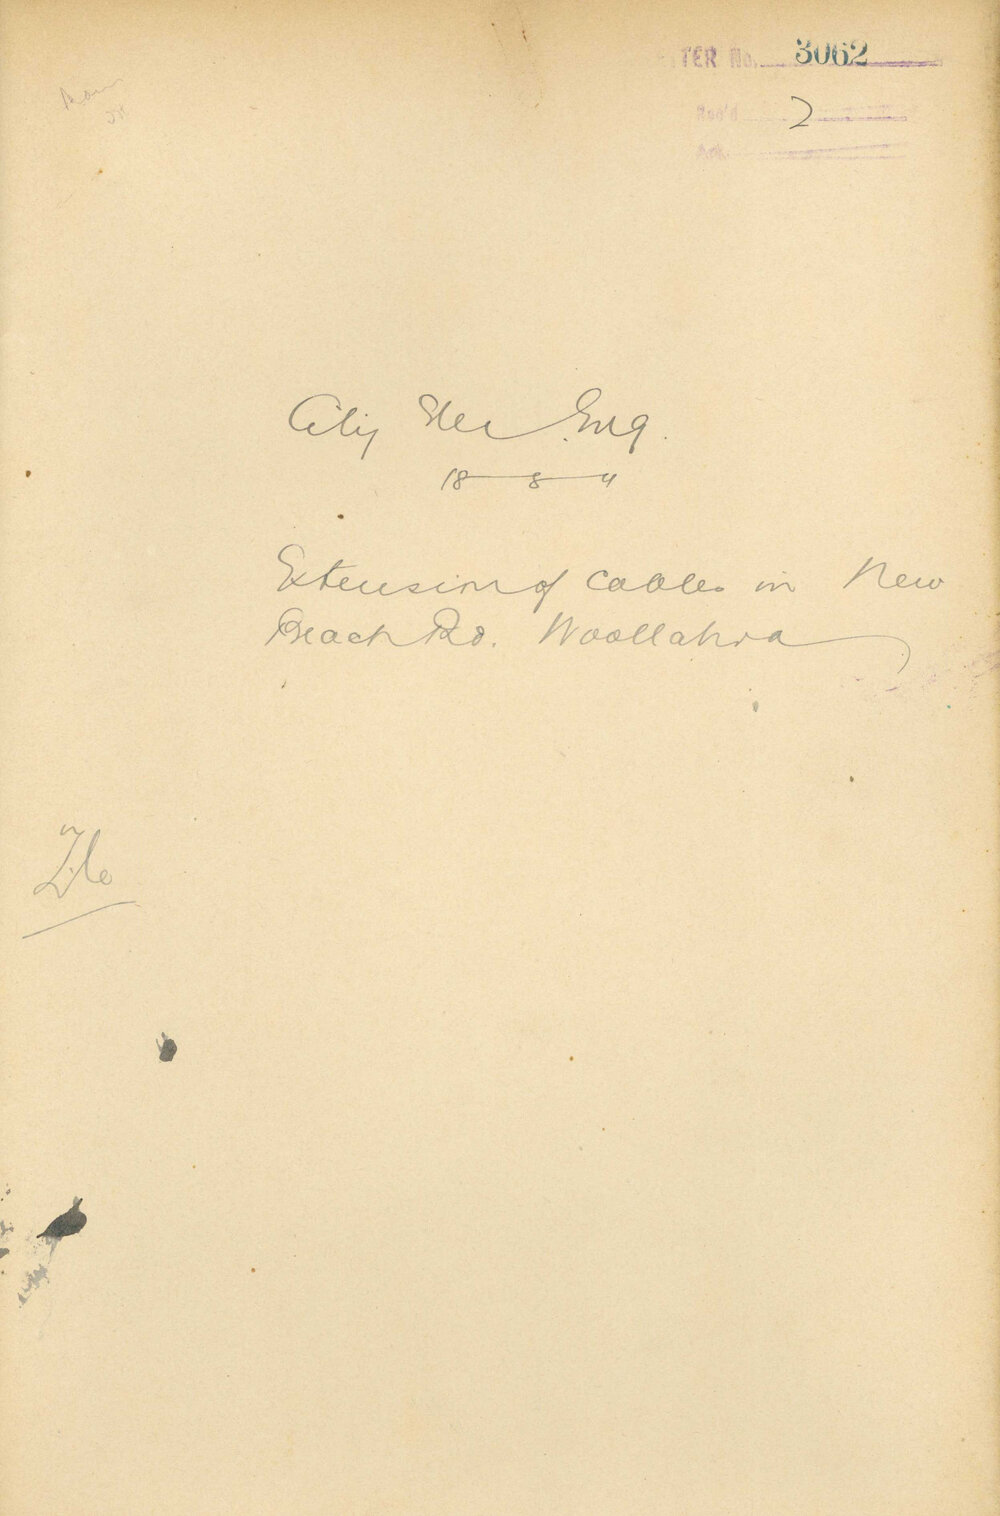 TTER No. 3062
Rec'd 2
Ack.
City Elec Eng.
18 - 8 - 11
Extension of Cables in New
Beach Rd. Woollahra
File